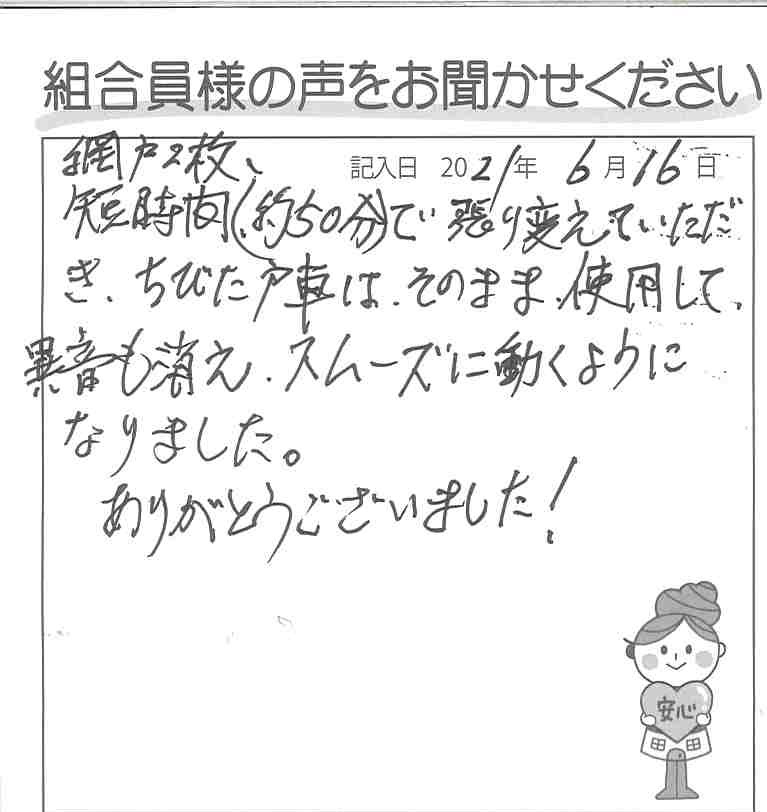 組合員様の声をお聞かせください
記入日 2021年 6月16日
網戸2枚、
短時間(約50分)で張り変えていただ
き、ちびた戸車は、そのまま、使用して、
異音も消え、スムーズに動くように
なりました。
ありがとうございました!
安心